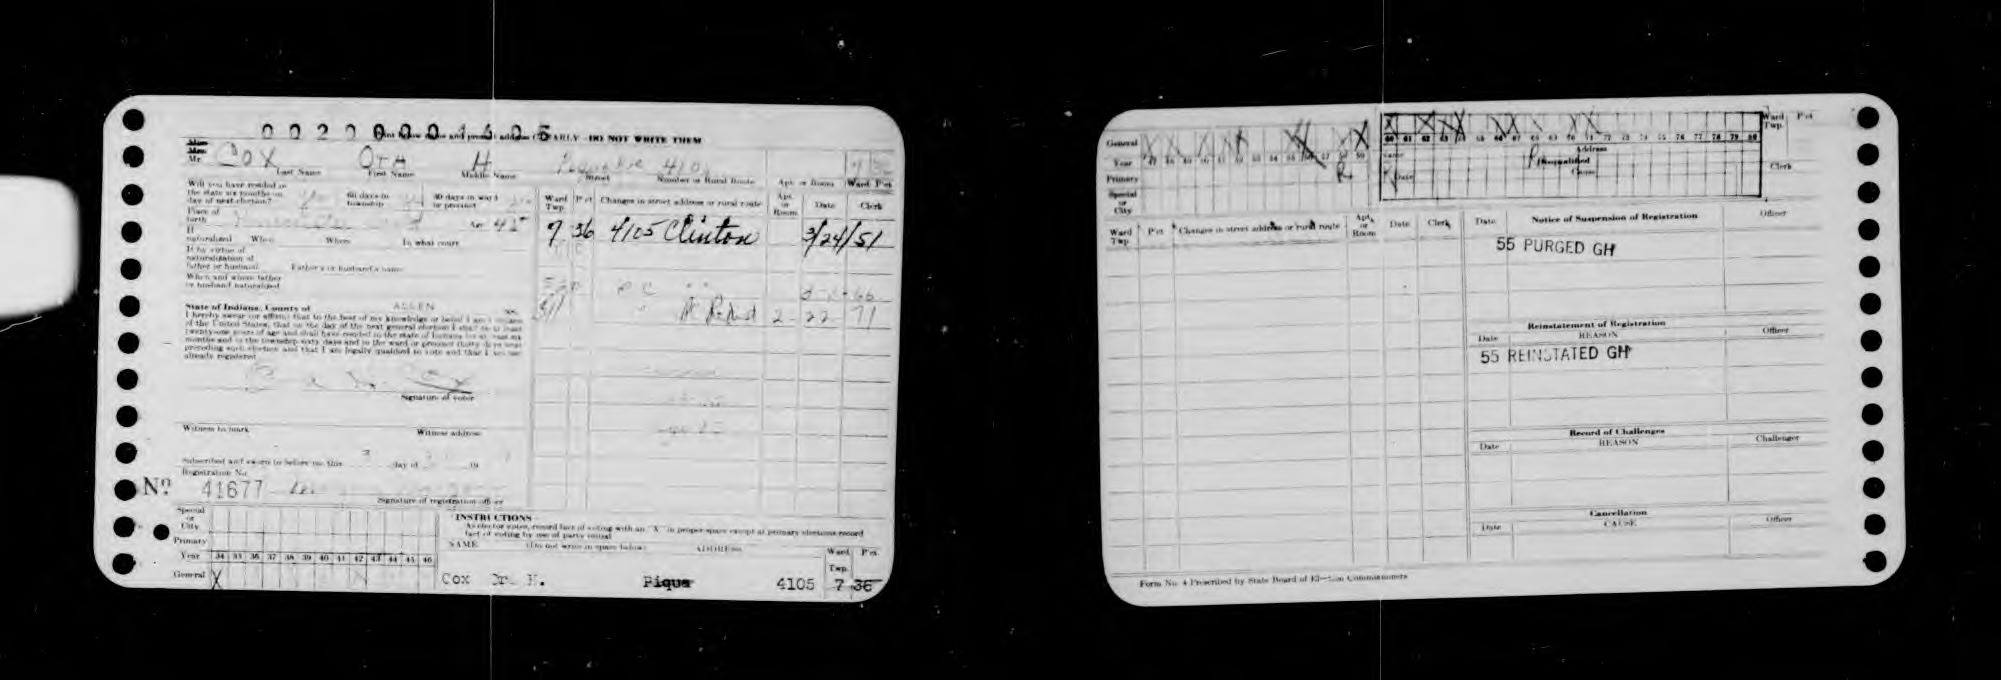 0020001505
Print below name and present address CLEARLY - DO NOT WRITE THEM
Mr. COX H
Last Name First Name Middle Name Street Number or Rural Route Apt. or Room Ward P'ct
Will you have resided in the state six months on day of next election?
60 days in township
30 days in ward or precinct
Place of birth
Age
If naturalized When Where In what court
Is by virtue of naturalization of father or husband Father's or husband's name
When and where father or husband naturalized
State of Indiana, County of ALLEN ss:
I hereby swear (or affirm) that to the best of my knowledge or belief I am a citizen
of the United States, that on the day of the next general election I shall be at least
twenty-one years of age and shall have resided in the state of Indiana for at least six
months and in the township sixty days and in the ward or precinct thirty days next
preceding such election and that I am legally qualified to vote and that I am not
already registered
Cox
Signature of voter
Witness to mark Witness address
Subscribed and sworn to before me this day of 19
Registration No.
No. 41677
Signature of registration officer
Ward Twp. P'ct Changes in street address or rural route Apt. or Room Date Clerk
7 36 4105 Clinton 3/24/51
2-22-71
Special or City
Primary
Year 34 35 36 37 38 39 40 41 42 43 44 45 46
General X
INSTRUCTIONS
As elector votes, record fact of voting with an "X" in proper space except at primary elections record
fact of voting by use of party initial
NAME (Do not write in space below) ADDRESS Ward Twp. P'ct
Cox H. Piqua 4105 7 36
General
Year 47 48 49 50 51 52 53 54 55 56 57 58 59
Primary R
Special or City
60 61 62 63 64 65 66 67 68 69 70 71 72 73 74 75 76 77 78 79 80
Ward Twp. P'ct
Name Address
Disqualified
Date Cause Clerk
Ward Twp. P'ct Changes in street address or rural route Apt. or Room Date Clerk
Date Notice of Suspension of Registration Officer
55 PURGED GH
Reinstatement of Registration
Date REASON Officer
55 REINSTATED GH
Record of Challenges
Date REASON Challenger
Cancellation
Date CAUSE Officer
Form No. 4 Prescribed by State Board of Election Commissioners